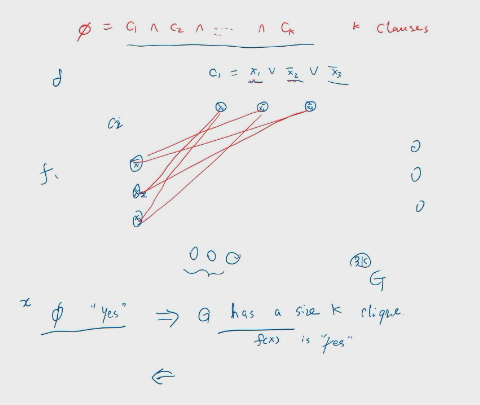 φ = C₁ ∧ C₂ ∧ ... ∧ Cₖ k clauses
C₁ = x₁ ∨ x̄₂ ∨ x̄₃
C₂
f.
0
0
0
0 0 0
3k
G
x φ "Yes" ⇒ G has a size k clique
f(x) is "Yes"
⇐